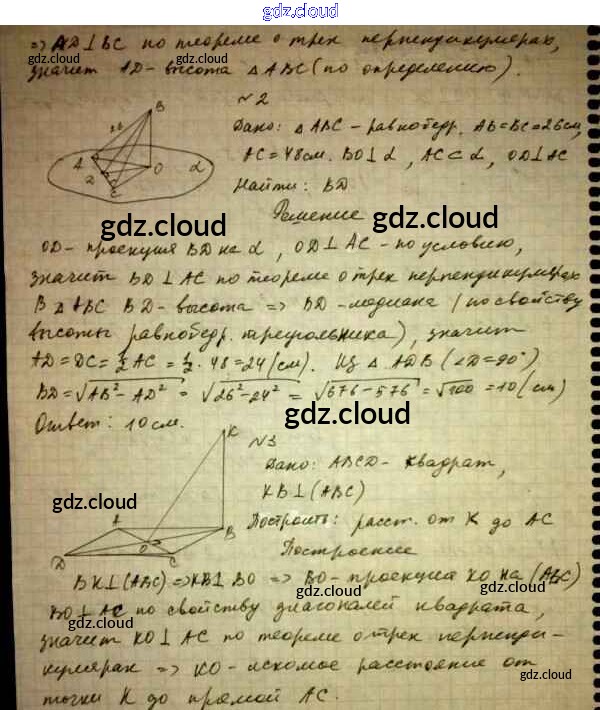 gdz.cloud
=> AD⊥BC по теореме о трех перпендикулярах,
значит AD - высота △ABC (по определению).
gdz.cloud
gdz.cloud
№2
Дано: △ABC - равнобедр. AB=BC=26см,
AC=48см. BO⊥α, AC⊂α, OD⊥AC
Найти: BD
B
26
A
O
α
2
C
gdz.cloud
gdz.cloud
Решение
gdz.cloud
gdz.cloud
OD - проекция BD на α, OD⊥AC - по условию,
значит BD⊥AC по теореме о трех перпендикулярах
В △ABC BD - высота => BD - медиана (по свойству
высоты равнобедр. треугольника), значит
AD=DC=½AC=½·48=24(см). Из △ADB (∠D=90°)
BD=√AB²-AD² = √26²-24² = √676-576 = √100 = 10(см)
Ответ: 10см.
gdz.cloud
№3
Дано: ABCD - квадрат,
KB⊥(ABC)
Построить: расст. от K до AC
Построение
K
gdz.cloud
A
B
O
D
C
gdz.cloud
BK⊥(ABC)=>KB⊥BO => BO - проекция KO на (ABC)
BO⊥AC по свойству диагоналей квадрата,
gdz.cloud
gdz.cloud
значит KO⊥AC по теореме о трех перпенди-
кулярах => KO - искомое расстояние от
точки K до прямой AC.
gdz.cloud
gdz.cloud